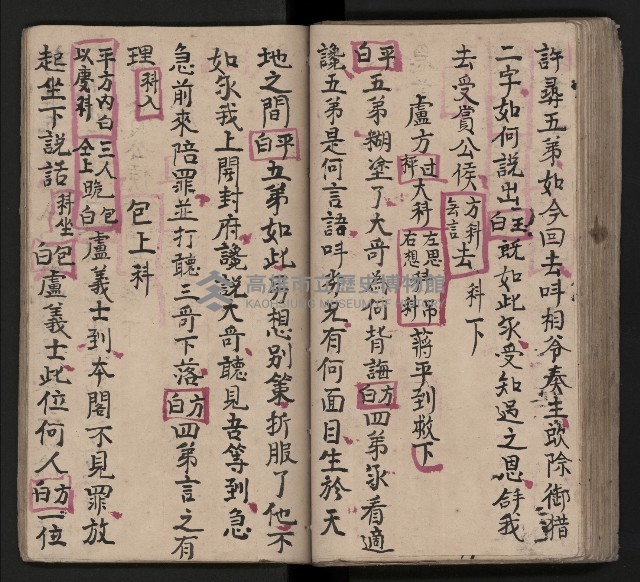 許尋五弟如今回去呌相爷奏主欧除御猫
二字如何說出王白既如此承受知遇之恩辞我
去受賞公侯方科去言去科下
盧方过秤大科左思右想科吊科蔣平到救下
平白五弟糊塗了大哥為何背誨方白四弟承看適
讒五弟是何言語呌我兄有何面目生於天
地之間平白五弟如此想別策折服了他不
如承我上開封府讒説大哥聽見吾等到急
急前來陪罪並打聽三哥下落方白四弟言之有
理科入 包上科
平方内白三人包以慶科仝上跪白盧義士到本閣不見罪放
起坐下說話科坐包白盧義士此位何人方白一位
高雄市立歷史博物館
KAOHSIUNG MUSEUM OF HISTORY